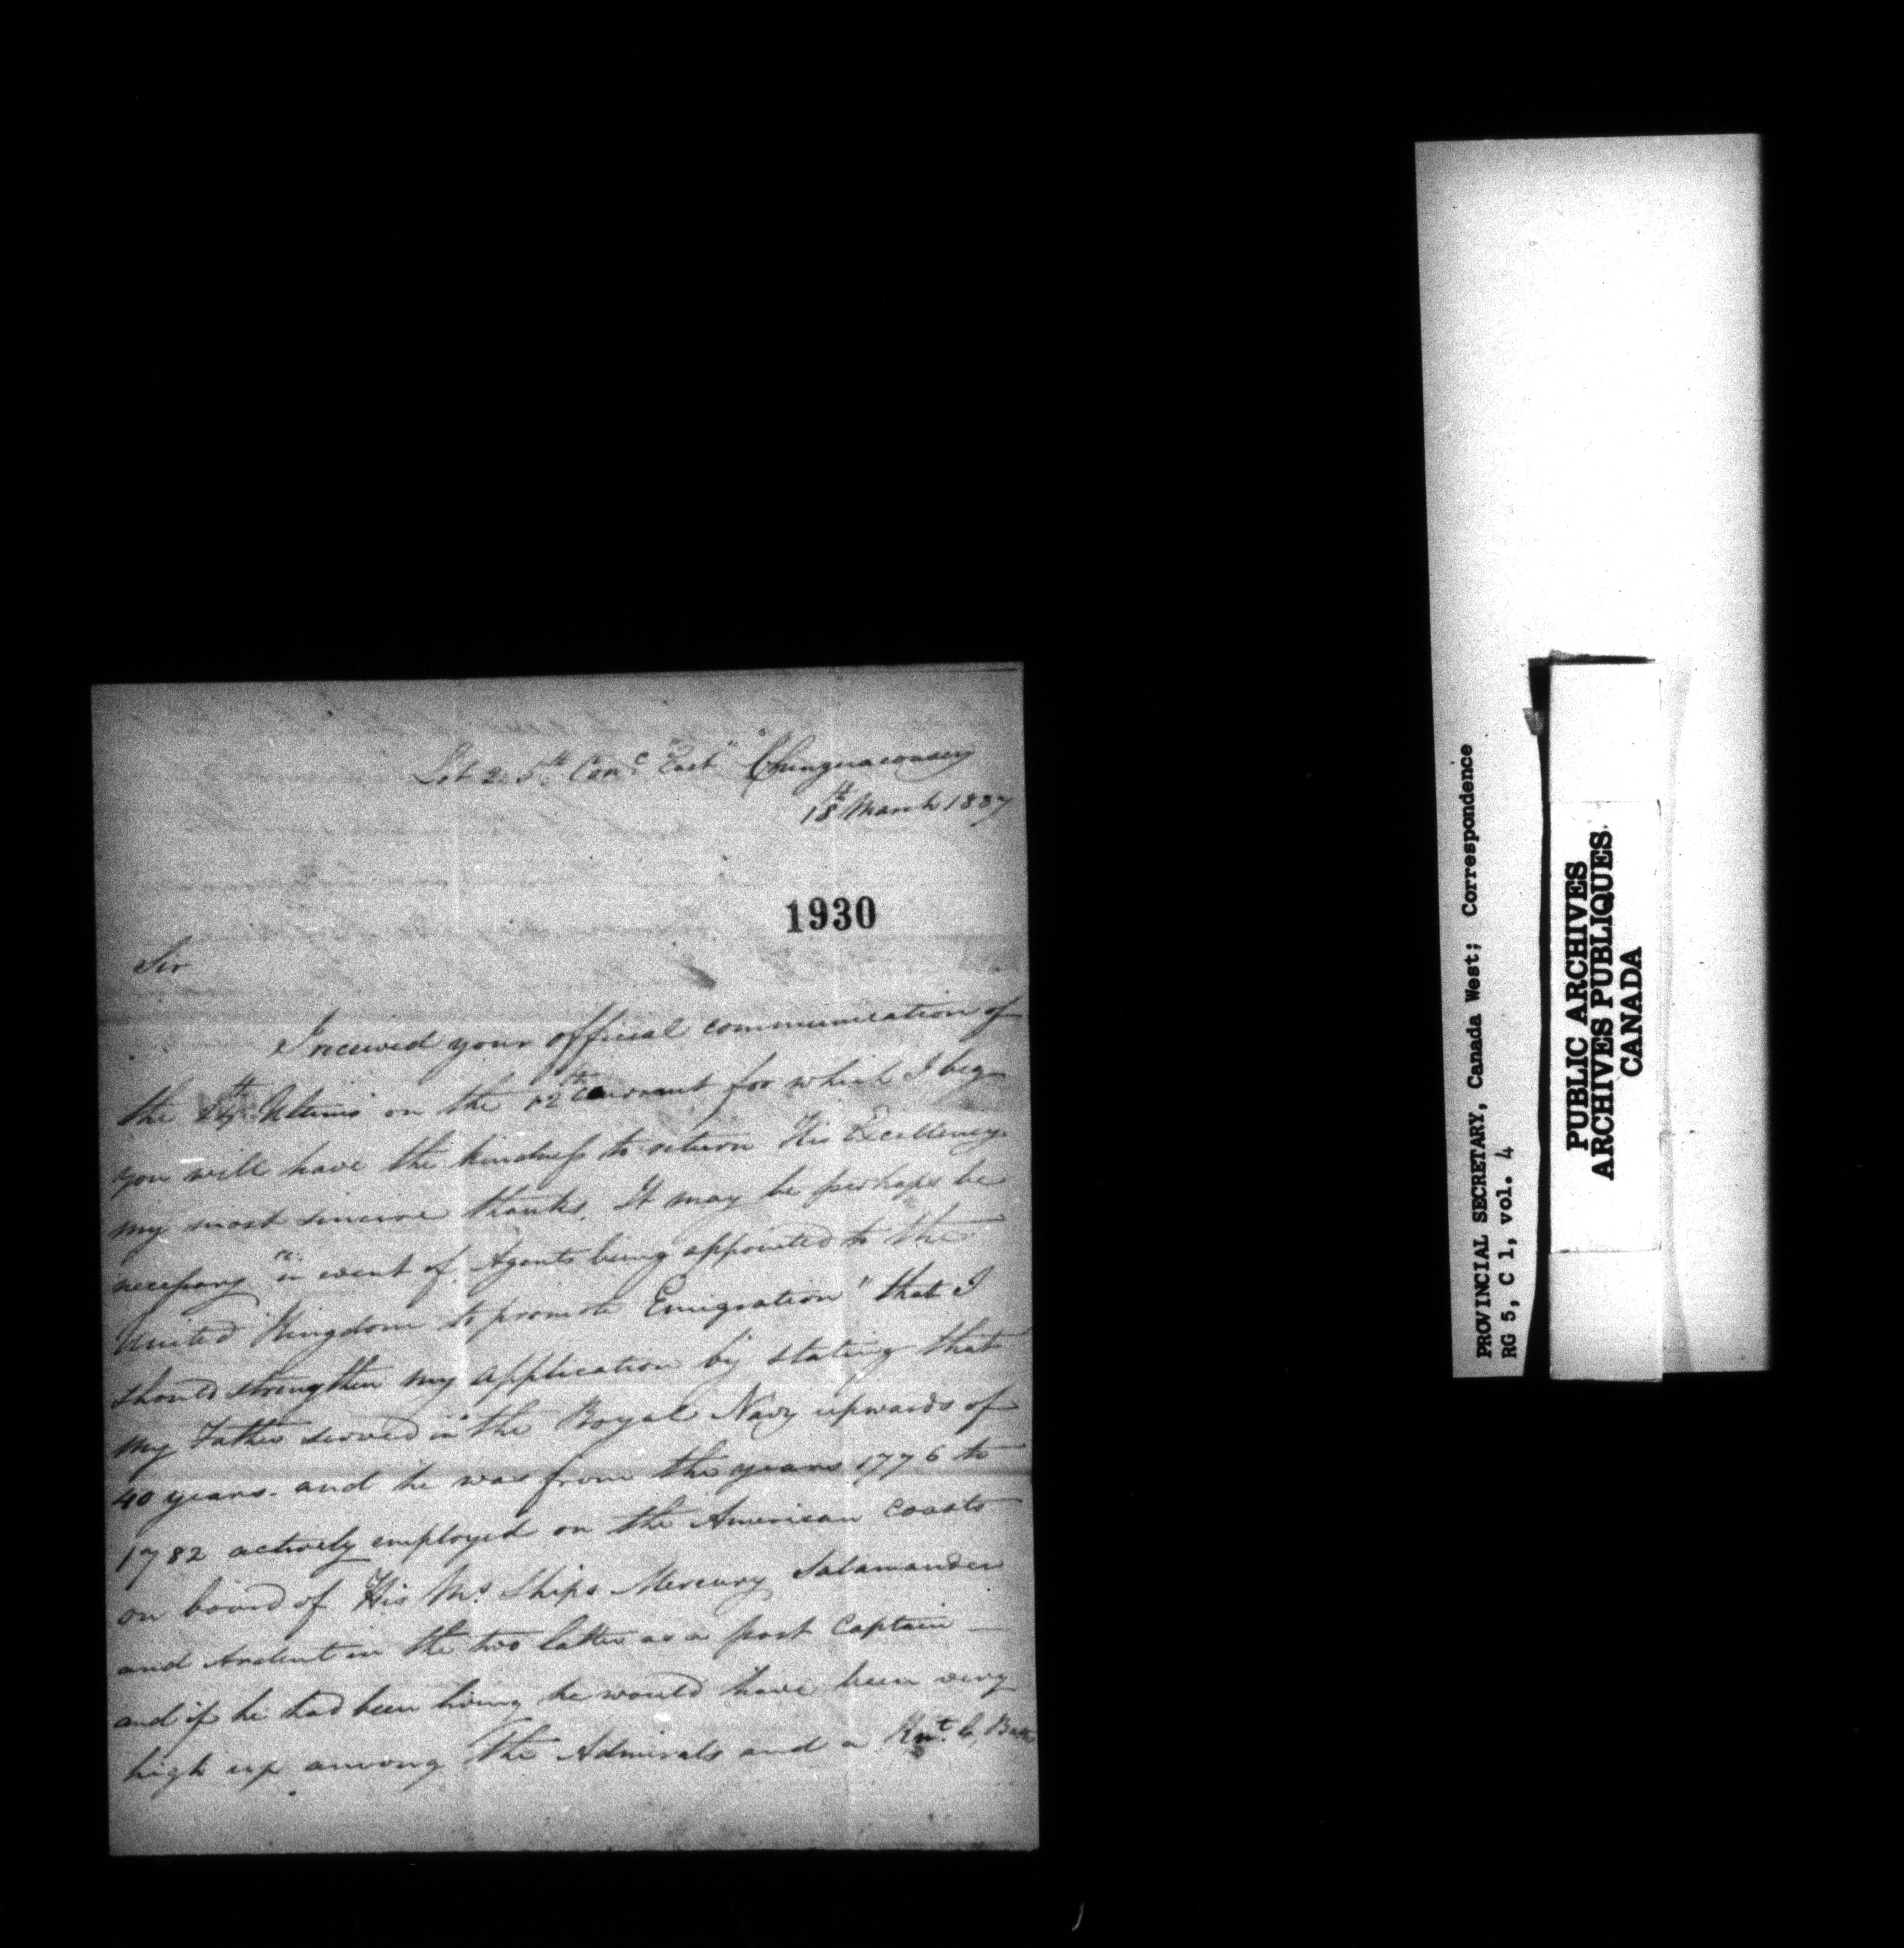 Lot 2. 5th Conc "East" Chinguacousey
18th March 1837
1930
Sir
I received your official communication of
the 24th Ultimo on the 12th Current for which I beg
you will have the kindness to return His Excellency
my most sincere thanks. It may be perhaps be
necessary "in event of Agents being appointed to the
United Kingdom to promote Emigration" that I
should strengthen my application by stating that
my Father served in the Royal Navy upwards of
40 years. and he was from the years 1776 to
1782 actively employed on the American Coasts
on board of His Ms. Ships Mercury Salamander
and Ardent in the two latter as a post Captain —
and if he had been living he would have been very
high up among the Admirals and a Knt. C. Bath
PROVINCIAL SECRETARY, Canada West; Correspondence
RG 5, C 1, vol. 4
PUBLIC ARCHIVES
ARCHIVES PUBLIQUES
CANADA